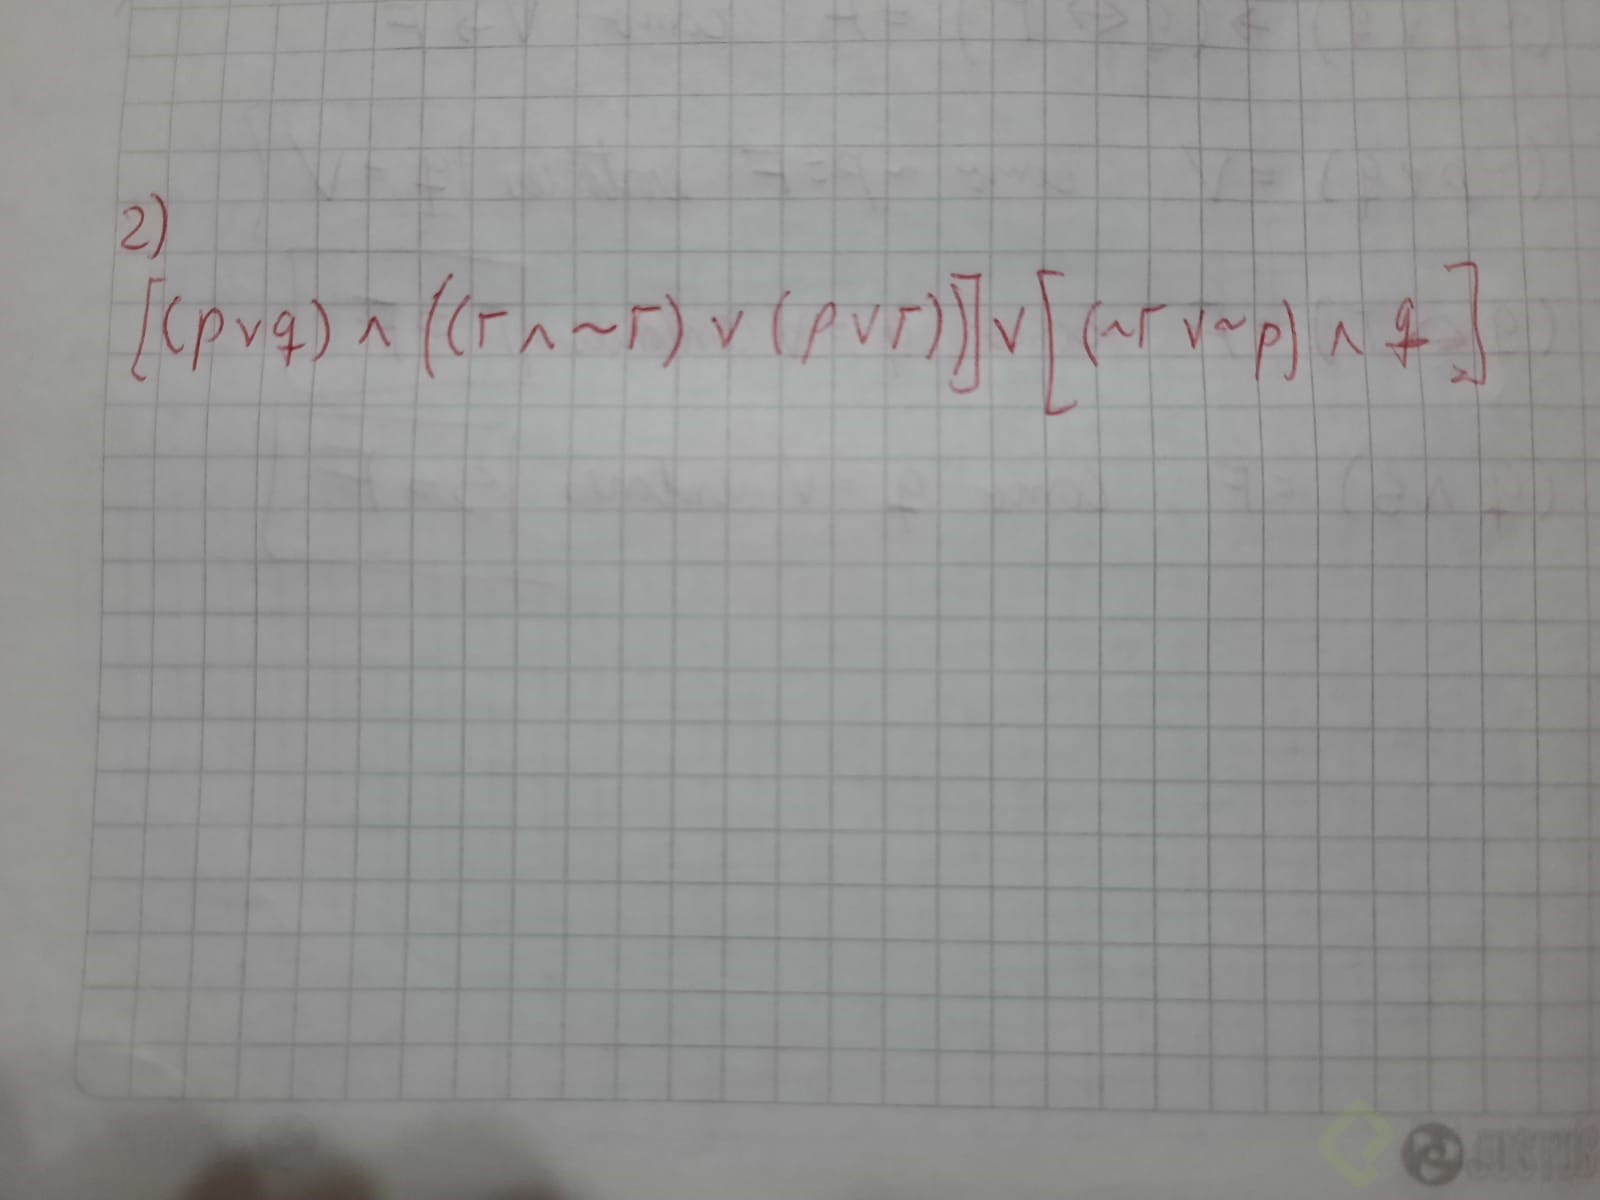 2)
[(p∨q) ∧ ((r ∧ ~r) ∨ (p∨r))] ∨ [(~r ∨ ~p) ∧ q]